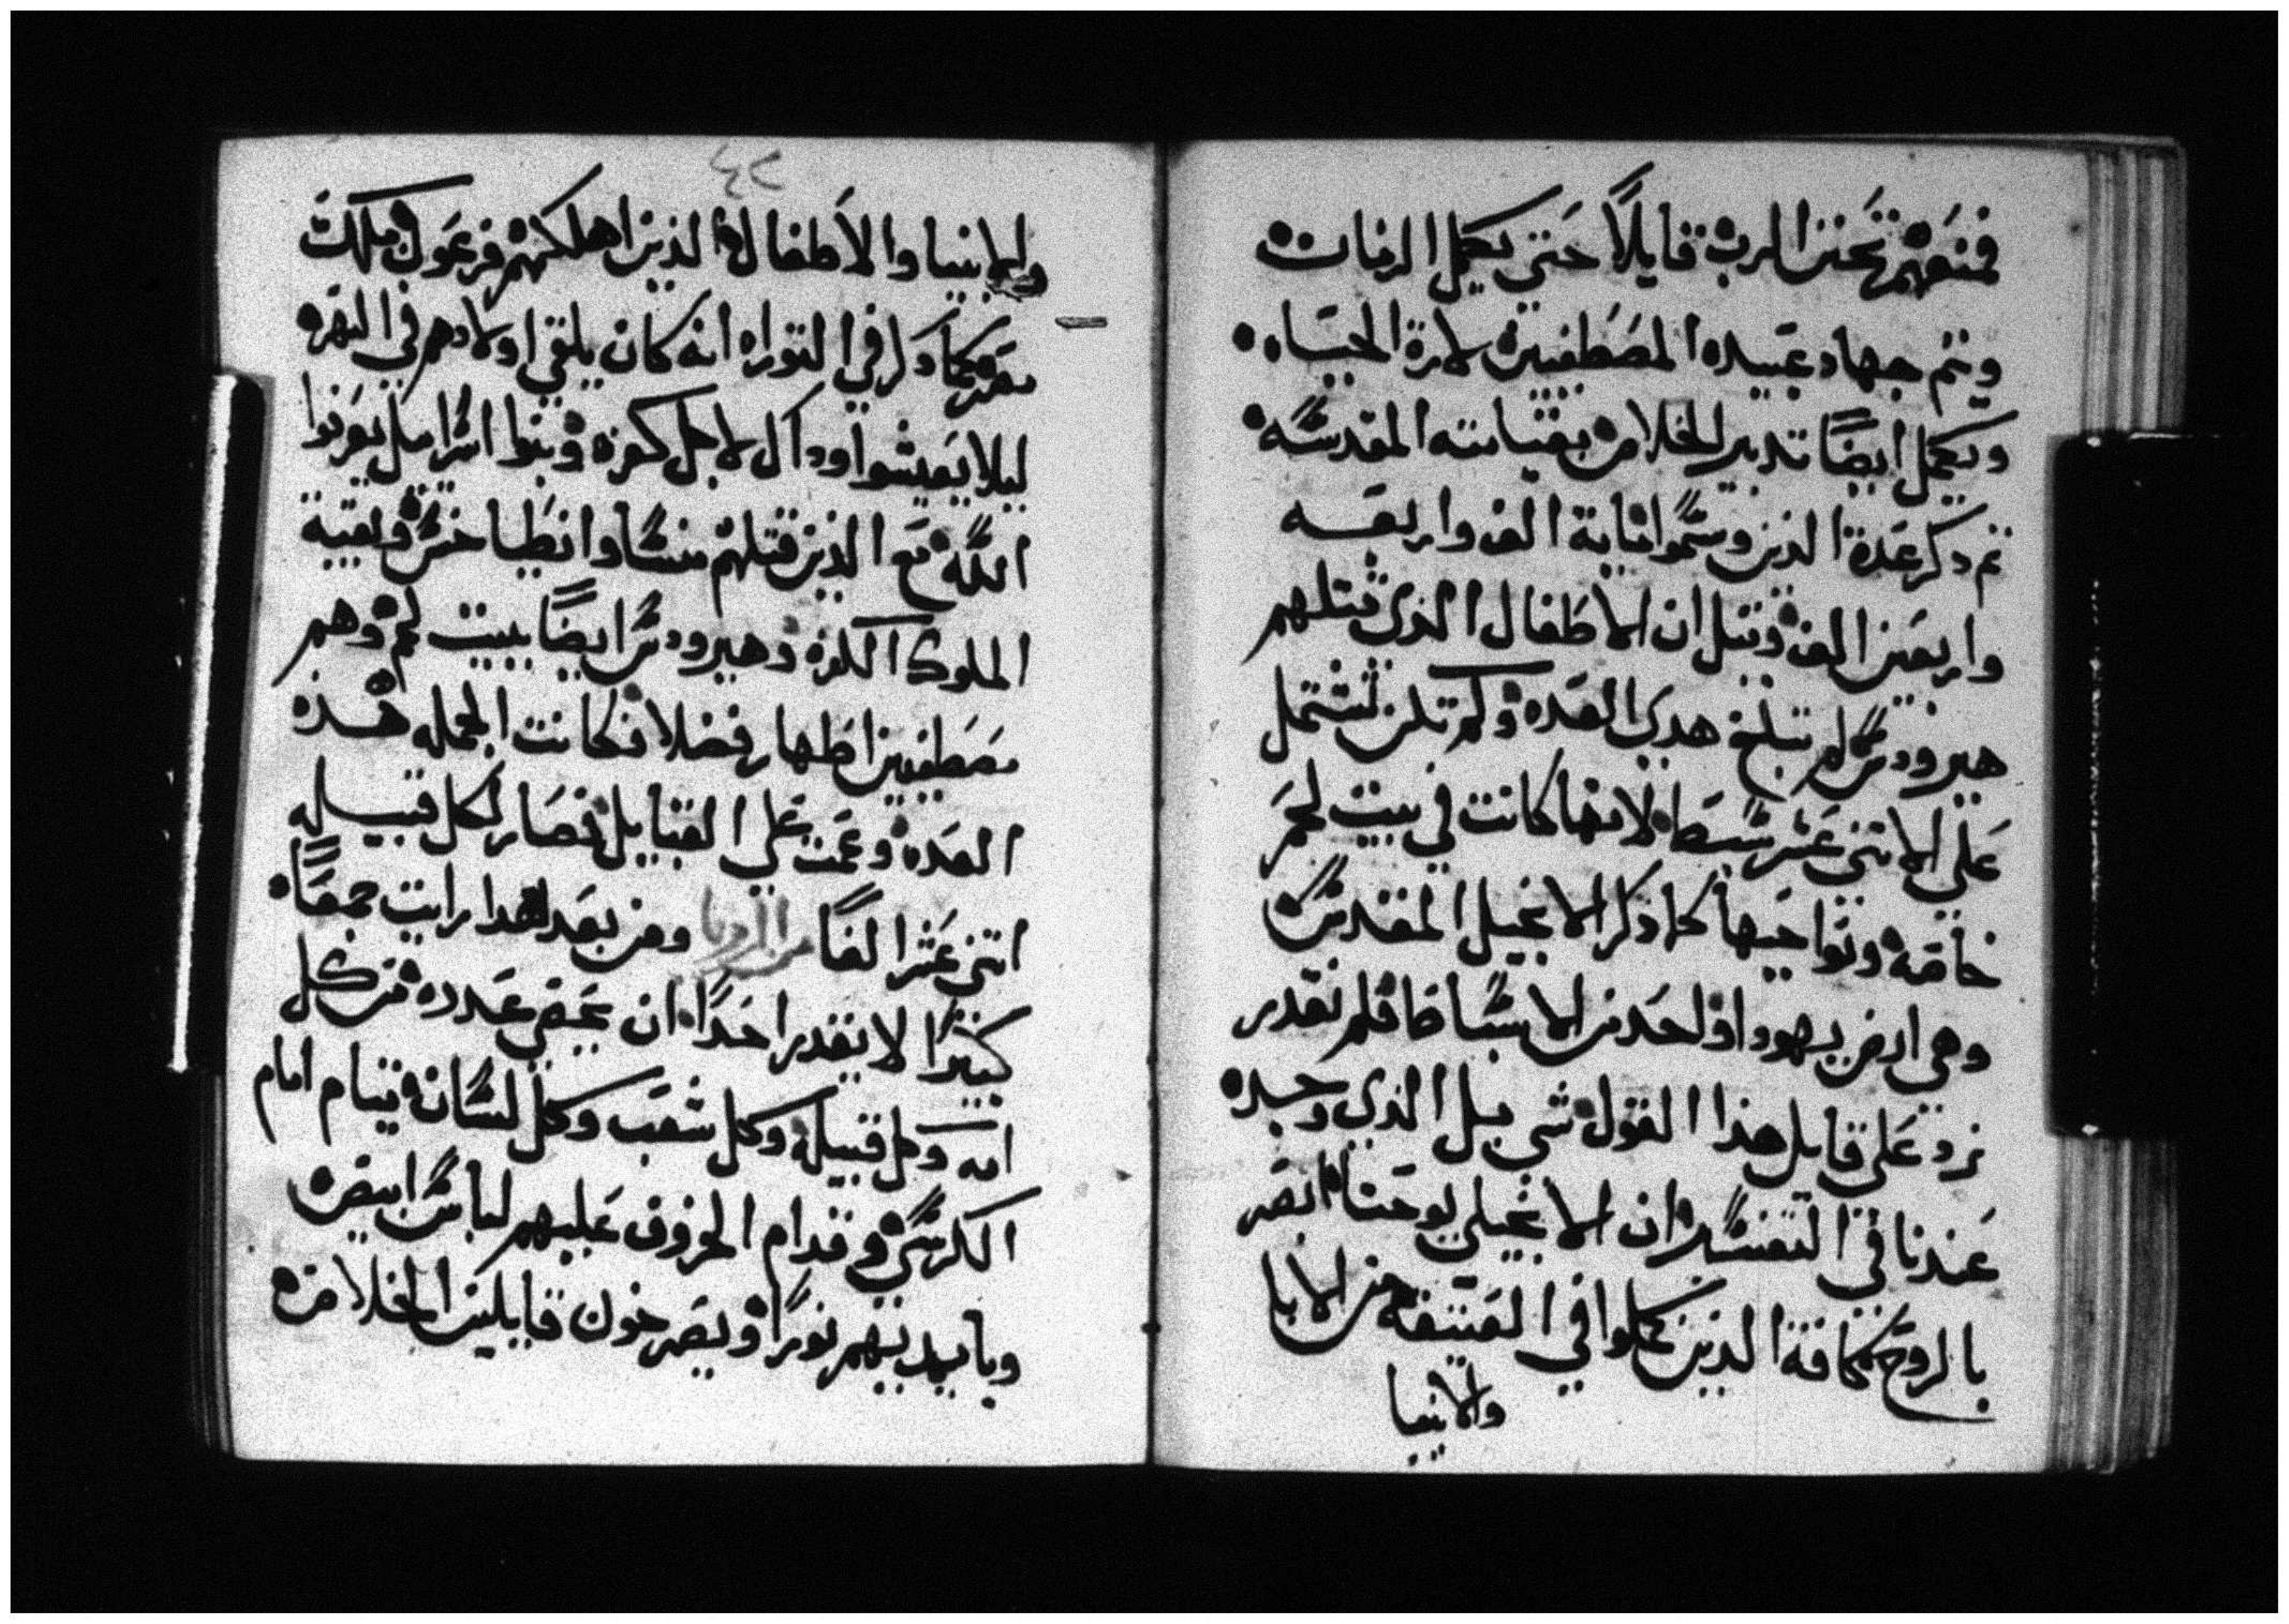 فمنعهم تحنن الرب قايلاً حتي يكمل الزمان
ويتم جهاد عبيده المصطفيين لارة الحياه
ويكمل ايضًا تدبير الخلاص بقيامته المقدسه
تم دكر عدة الذين وسموا ماية الف واربعه
واربعين الف وقيل ان الاطفال الذي قتلهم
هيرودس لم تبلغ هدي العده ولم تكن تشتمل
علي الاتني عشر سبط لانها كانت في بيت لحم
خاصه ونواحيها كما ذكر الانجيل المقدس
وهي ارض يهودا واحد من الاسباط فلم نقدر
نرد علي قايل هذا القول شي بل الذي وجده
عندنا في التفسير ان الانجيلي يوحنا ابصر
بالروح كافة الذين كملوا في العتيقه من الابا
والانبيا
٤٢
والانبيا والاطفال الذين اهلكهم فرعون ملك
مصر كما دكر في التوراه انه كان يلقي اولادهم في النهر
ليلا يعيشوا وداك لاجل كفره وبنوا اسراييل يعرفوا
الله مع الذين قتلهم منسا وانطياخس وبقية
الملوك الكفره وهيرودس ايضًا ببيت لحم وهم
مصطفيين اطهار فضلا فكانت الجمله هذه
العده وعمت علي القبايل فصار لكل قبيله
اتني عشر الفًا من الرويا ومن بعد هدا رايت جمعًا
كتيرًا لا يقدر احدًا ان يحصي عدده من كل
امه وكل قبيله وكل شعب وكل لسان قيام امام
الكرسي وقدام الخروف عليهم لباس ابيض
وبايديهم نورًا ويصرخون قايلين الخلاص